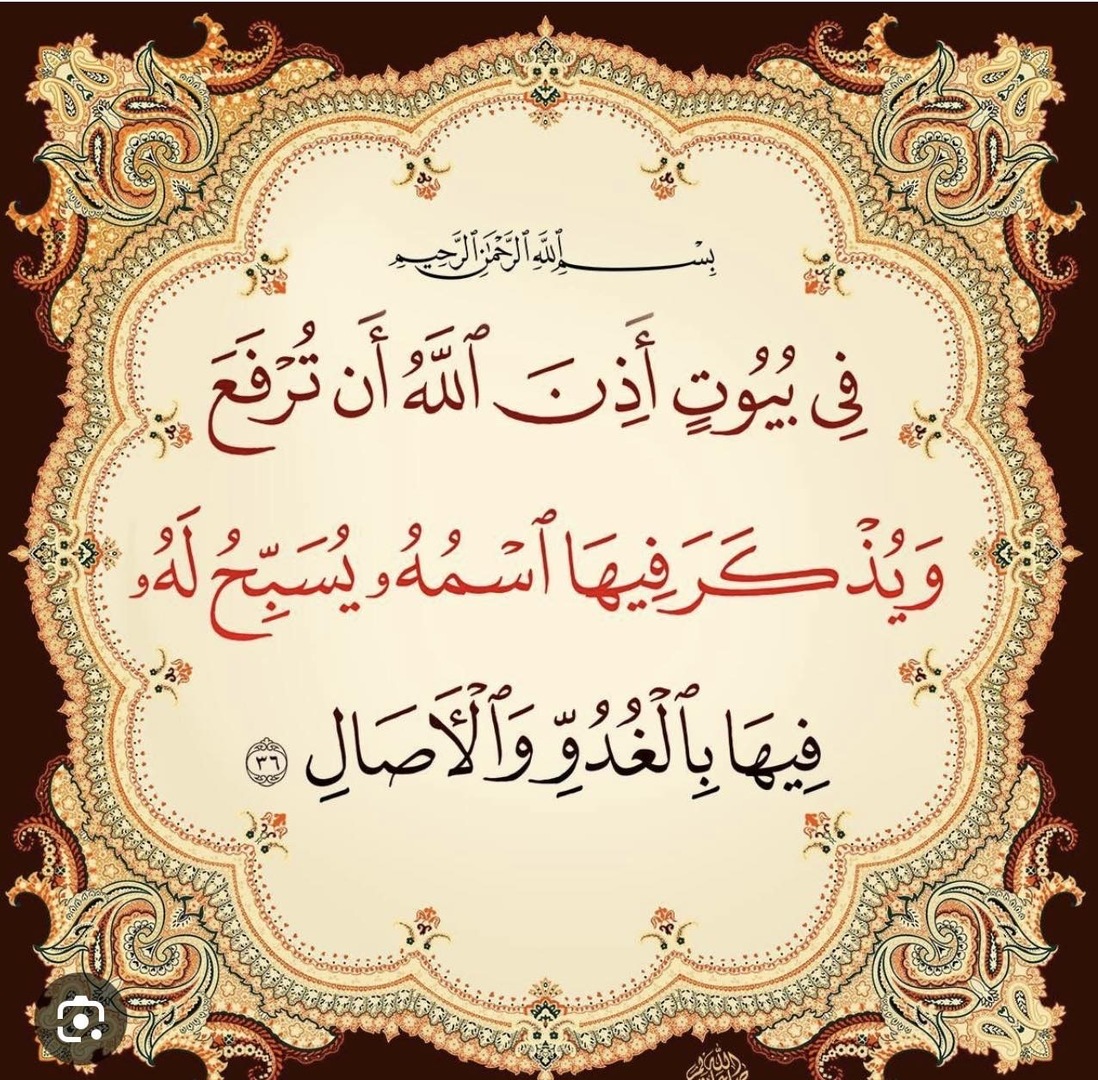 بِسْمِ ٱللَّهِ ٱلرَّحْمَٰنِ ٱلرَّحِيمِ
فِى بُيُوتٍ أَذِنَ ٱللَّهُ أَن تُرْفَعَ
وَيُذْكَرَ فِيهَا ٱسْمُهُۥ يُسَبِّحُ لَهُۥ
فِيهَا بِٱلْغُدُوِّ وَٱلْأَصَالِ ٣٦